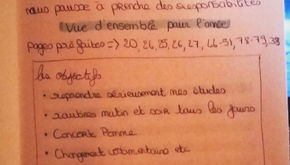 nous pousse à prendre des responsabilités
Vue d'ensemble pour l'année
pages pré faites => 20, 24, 25, 26, 27, 46-51, 78-79, 38
les objectifs
• reprendre sérieusement mes études
• matin et soir tous les jours
• Concerts Pomme
• Changement etc